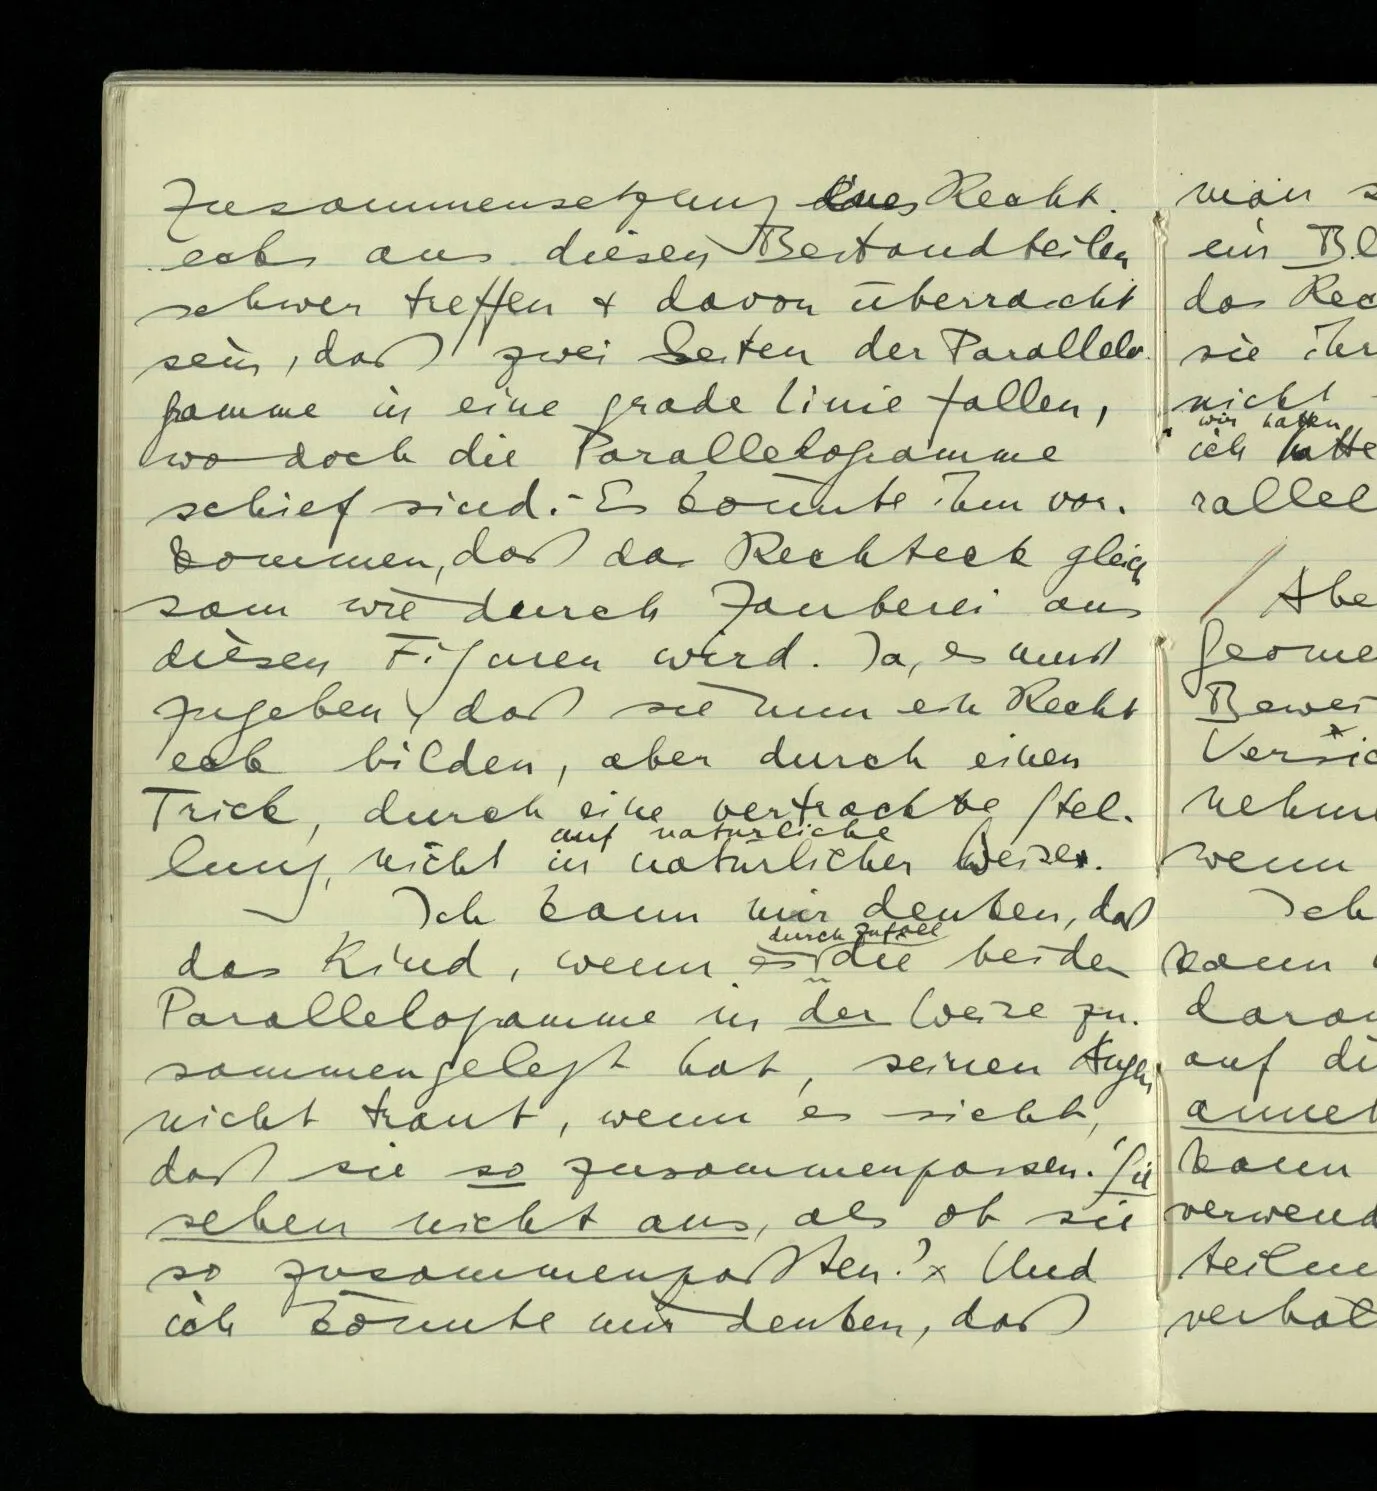 Zusammensetzung eines Recht-
ecks aus diesen Bestandteilen
schwer treffen + davon überrascht
sein, daß zwei Seiten der Parallelo-
gramme in eine grade Linie fallen,
wo doch die Parallelogramme
schief sind. – Es könnte ihm vor-
kommen, daß das Rechteck gleich
sam wie durch Zauberei aus
diesen Figuren wird. Ja, es muß
zugeben, daß sie nun ein Recht
eck bilden, aber durch einen
Trick, durch eine vertrackte Stel-
auf natürliche
lung, nicht in natürlicher Weise.
Ich kann mir denken, daß
durch Zufall
das Kind, wenn es die beiden
Parallelogramme in der Weise zu-
sammengelegt hat, seinen Augen
nicht traut, wenn es sieht,
daß sie so zusammenpassen. 'Sie
sehen nicht aus, als ob sie
so zusammenpaßten.' Und
ich könnte mir denken, daß
man s
ein Bl
das Rec
sie ihr
nicht
wir hatten
ich hatte
rallel
/ Abe
geome
Bewei
Versic
nehme
wenn
Ich
kann
darau
auf di
anneh
kann
verwend
teilne
verhäl